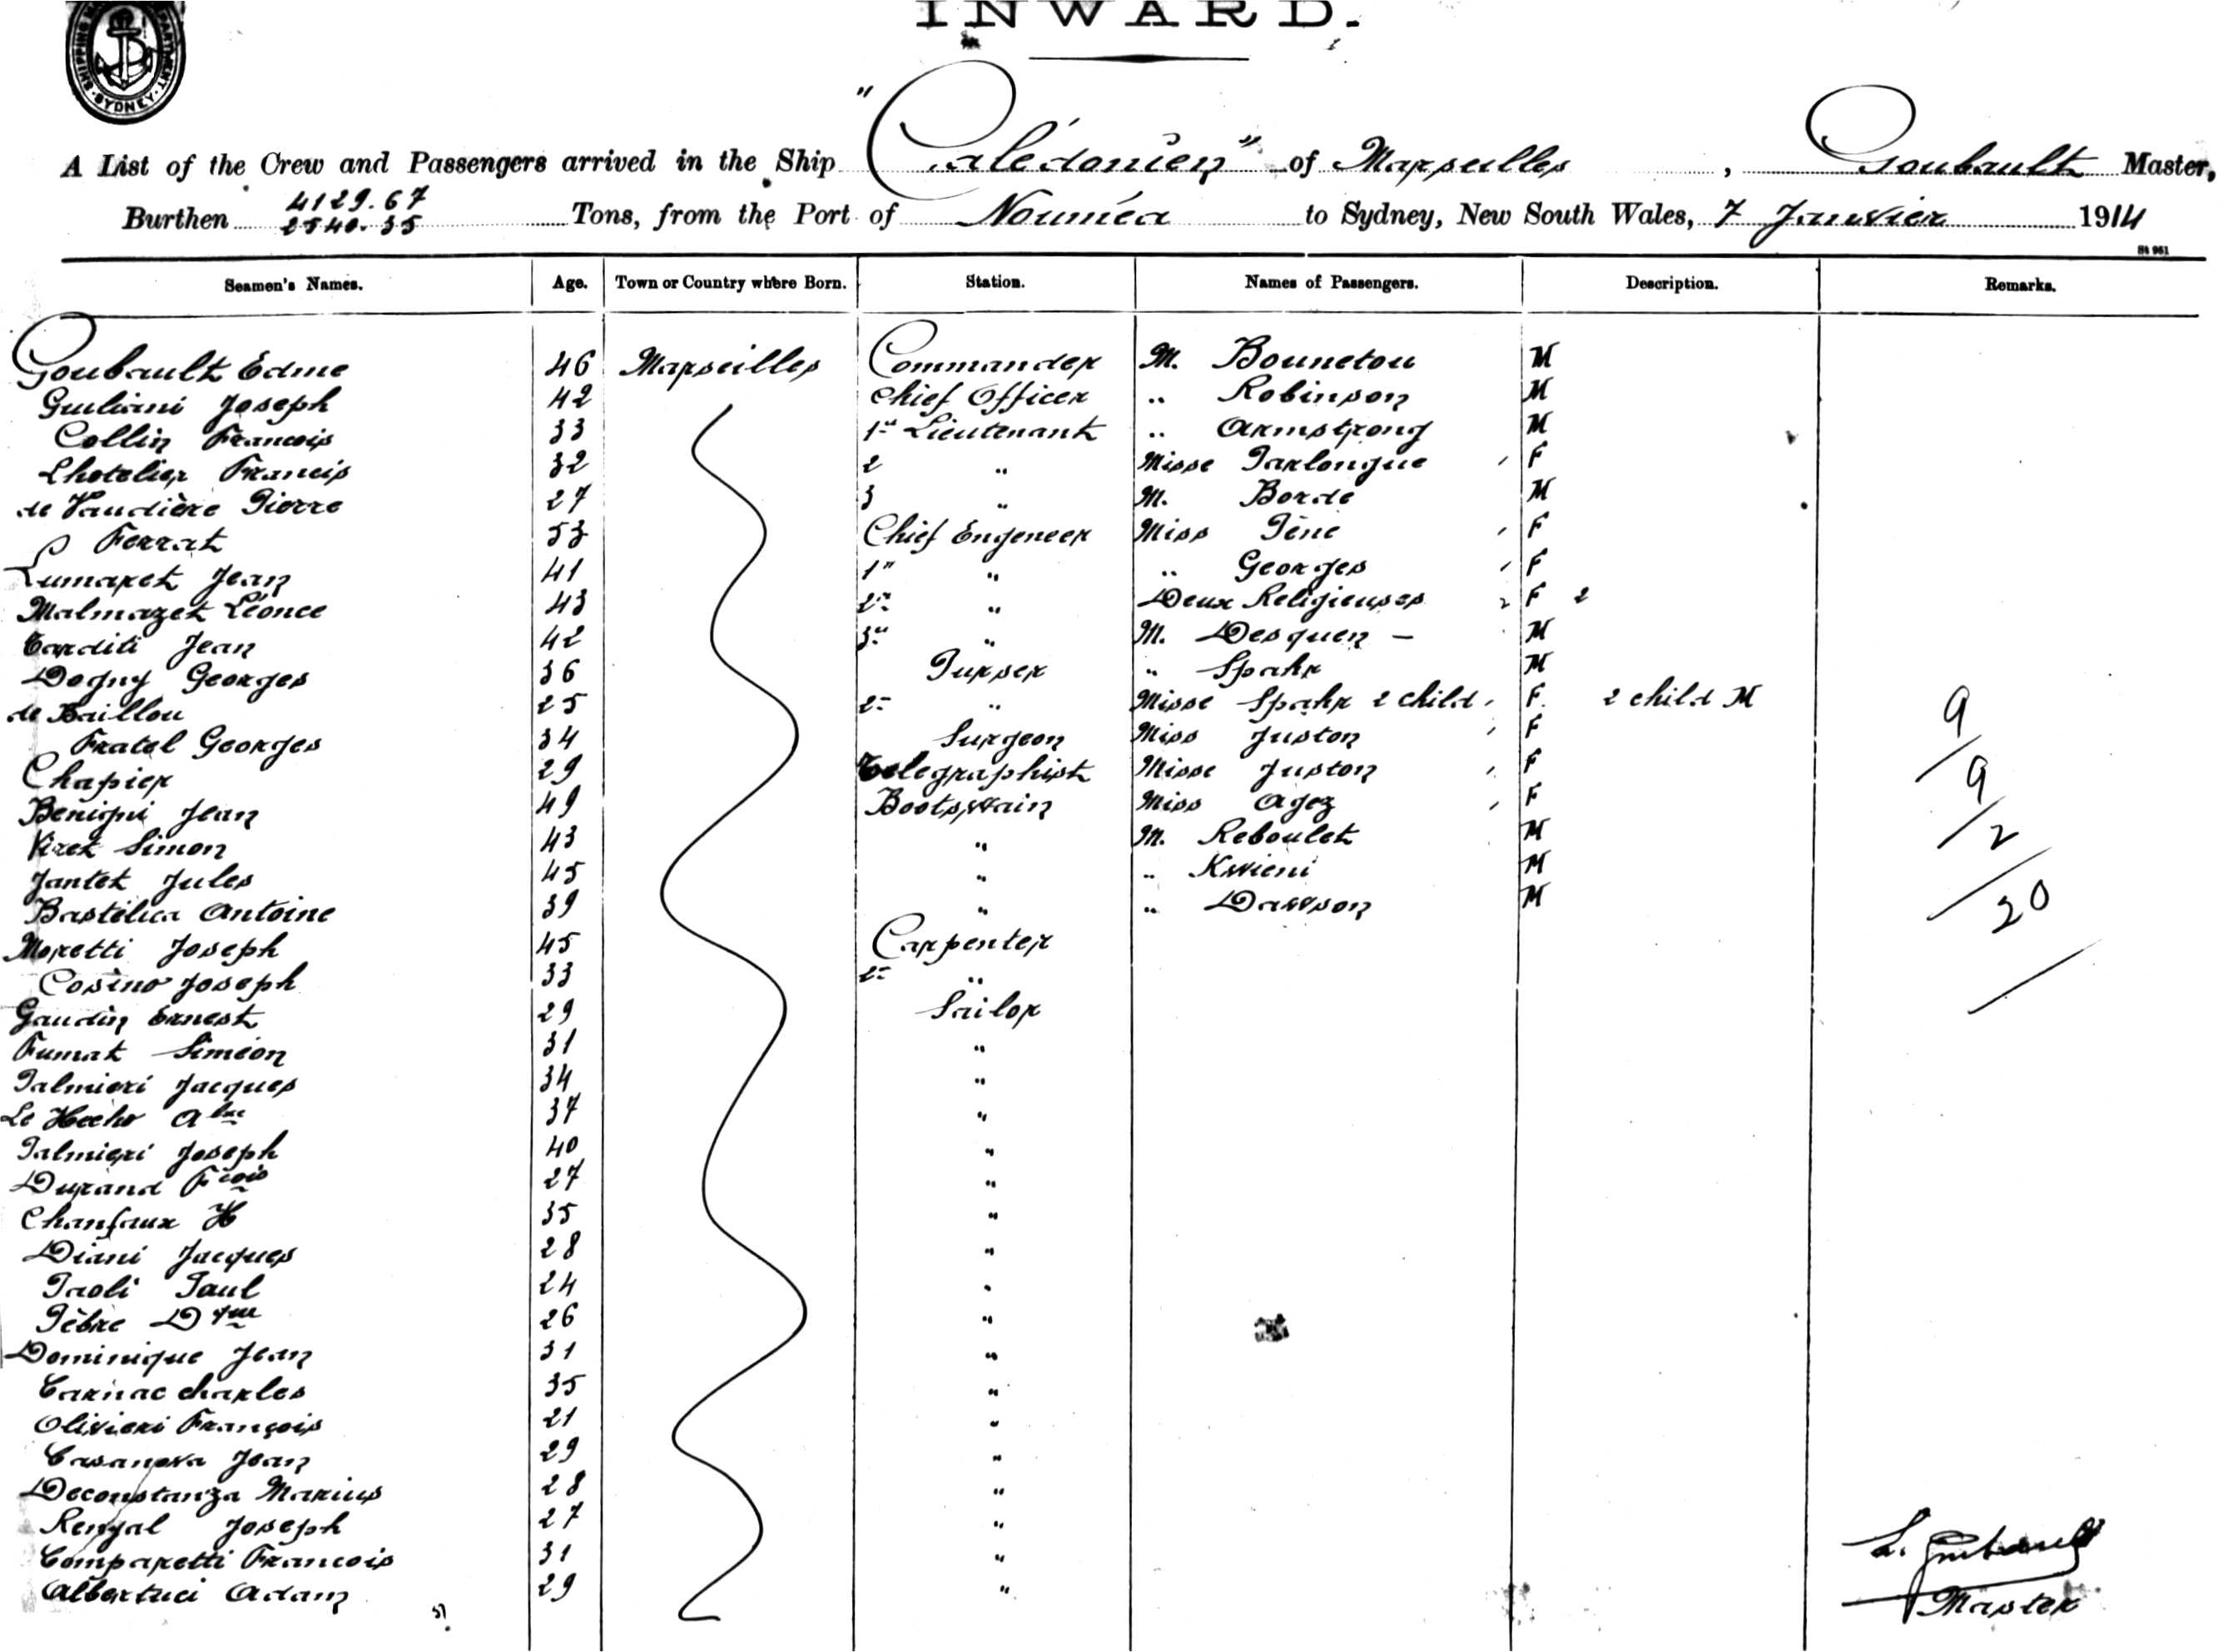 INWARD.
SYDNEY
A List of the Crew and Passengers arrived in the Ship "Calédonien" of Marseilles, Goubault Master,
Burthen 4129.67 2540.35 Tons, from the Port of Nouméa to Sydney, New South Wales, 7 Janvier 1914
St 961
Seamen's Names. Age. Town or Country where Born. Station. Names of Passengers. Description. Remarks.
Goubault Edme 46 Marseilles Commander M. Bounetou M
Guiliani Joseph 42 Chief Officer " Robinson M
Collin Francois 33 1er Lieutenant " Armstrong M
Lhotelier Francis 32 2 " Misse Tarlongue F
de Vaudière Pierre 27 3 " M. Borde M
Ferrat 53 Chief Engeneer Miss Pène F
Lumaret Jean 41 1er " " Georges F
Malmazet Léonce 43 2me " Deux Religieuses 2 F 2
Carditi Jean 42 3me " M. Desquen — M
Dogny Georges 36 Purser " Spahr M
de Baillou 25 2me " Misse Spahr 2 child F. 2 child M 9
Fratel Georges 34 Surgeon Miss Juston F
Chapier 29 Telegraphist Misse Juston F 9
Benigni Jean 49 Bootswain Miss Agez F
Viret Simon 43 " M. Reboulet M 2
Jantet Jules 45 " " Kvieni M
Bastélica Antoine 39 " " Dawson M 20
Moretti Joseph 45 Carpenter
Cosino Joseph 33 2me "
Gaudin Ernest 29 Sailor
Fumat Siméon 31 "
Palmieri Jacques 34 "
Le Hecho Alre 37 "
Palmieri Joseph 40 "
Durand Fcois 27 "
Chanfaux H 35 "
Diani Jacques 28 "
Paoli Paul 24 "
Pèbre Dque 26 "
Dominique Jean 31 "
Carnac charles 35 "
Olivieri François 21 "
Casanova Jean 29 "
Deconstanza Marius 28 "
Rengal Joseph 27 "
Comparetti Francois 31 "
Albertuci Adam 29 "
Master